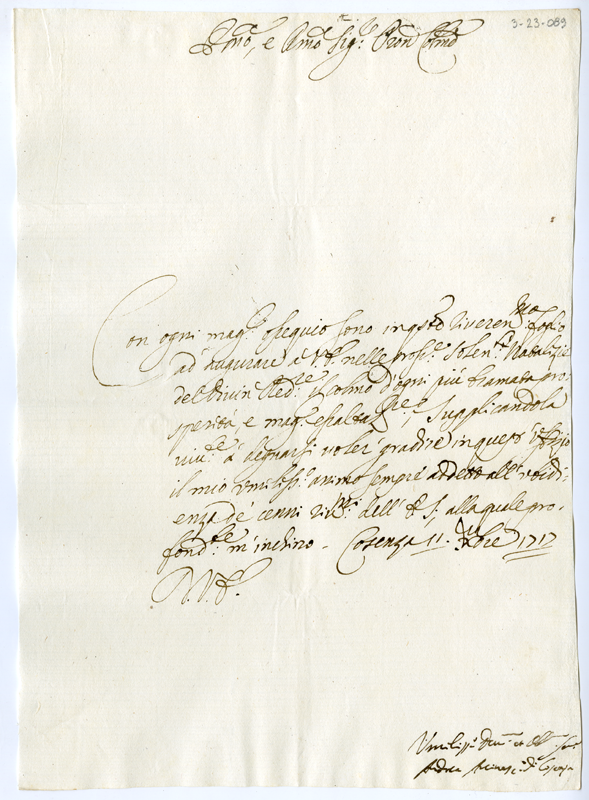 3-23-089
Emo, e Rmo Sig.re Pron Colmo
Con ogni mag.r ossequio sono in qsto riveren.mo foglio
ad augurare a V.E. nelle pross.e Solen.tà Natalizie
del Divin Red.re il colmo d'ogni più bramata pro-
sperità e mag.r esaltaz.ne, Supplicandola
riv.te a degnarsi voler gradire in questo offizio
il mio umiliss.o animo sempre addetto all'vbidi-
enza de' cenni riv.mi dell'E.S., alla quale pro-
fond.te m'inchino - Cosenza 11. Xbre 1717
D.V.E.
Vmiliss.o Dev.mo et Obl.mo
Andrea Cosenza